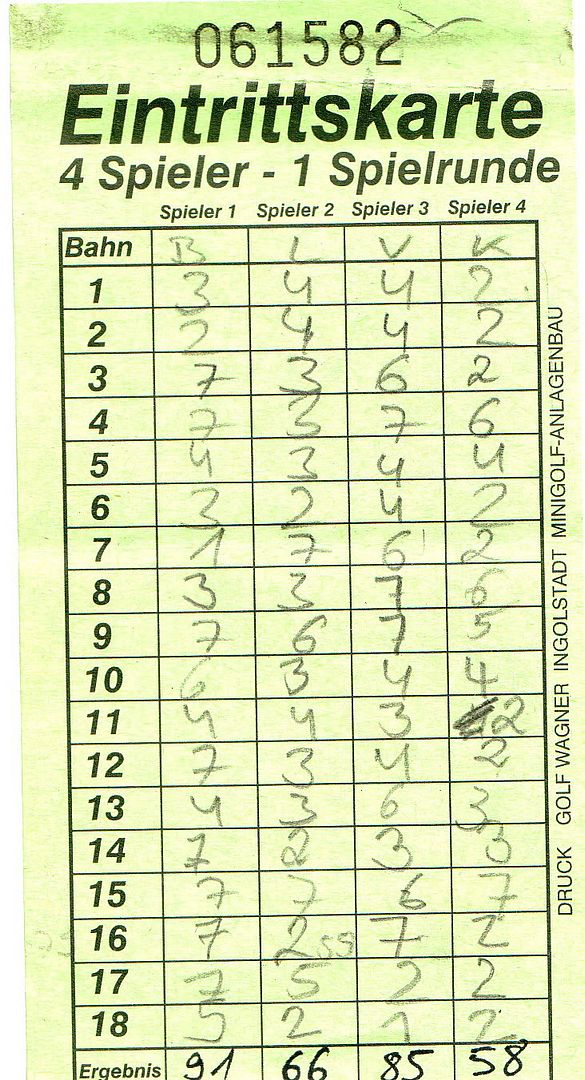 061582
Eintrittskarte
4 Spieler - 1 Spielrunde
Spieler 1 Spieler 2 Spieler 3 Spieler 4
Bahn B L V K
1 3 4 4 2
2 2 4 4 2
3 7 3 6 2
4 7 3 7 6
5 4 3 4 4
6 3 2 4 2
7 1 7 6 2
8 3 3 7 6
9 7 6 7 5
10 6 3 4 4
11 4 4 3 2
12 7 3 4 2
13 4 3 6 3
14 7 2 3 3
15 7 7 6 7
16 7 2 59 7 2
17 7 5 2 2
18 5 2 1 2
Ergebnis 91 66 85 58
DRUCK GOLF WAGNER INGOLSTADT MINIGOLF-ANLAGENBAU